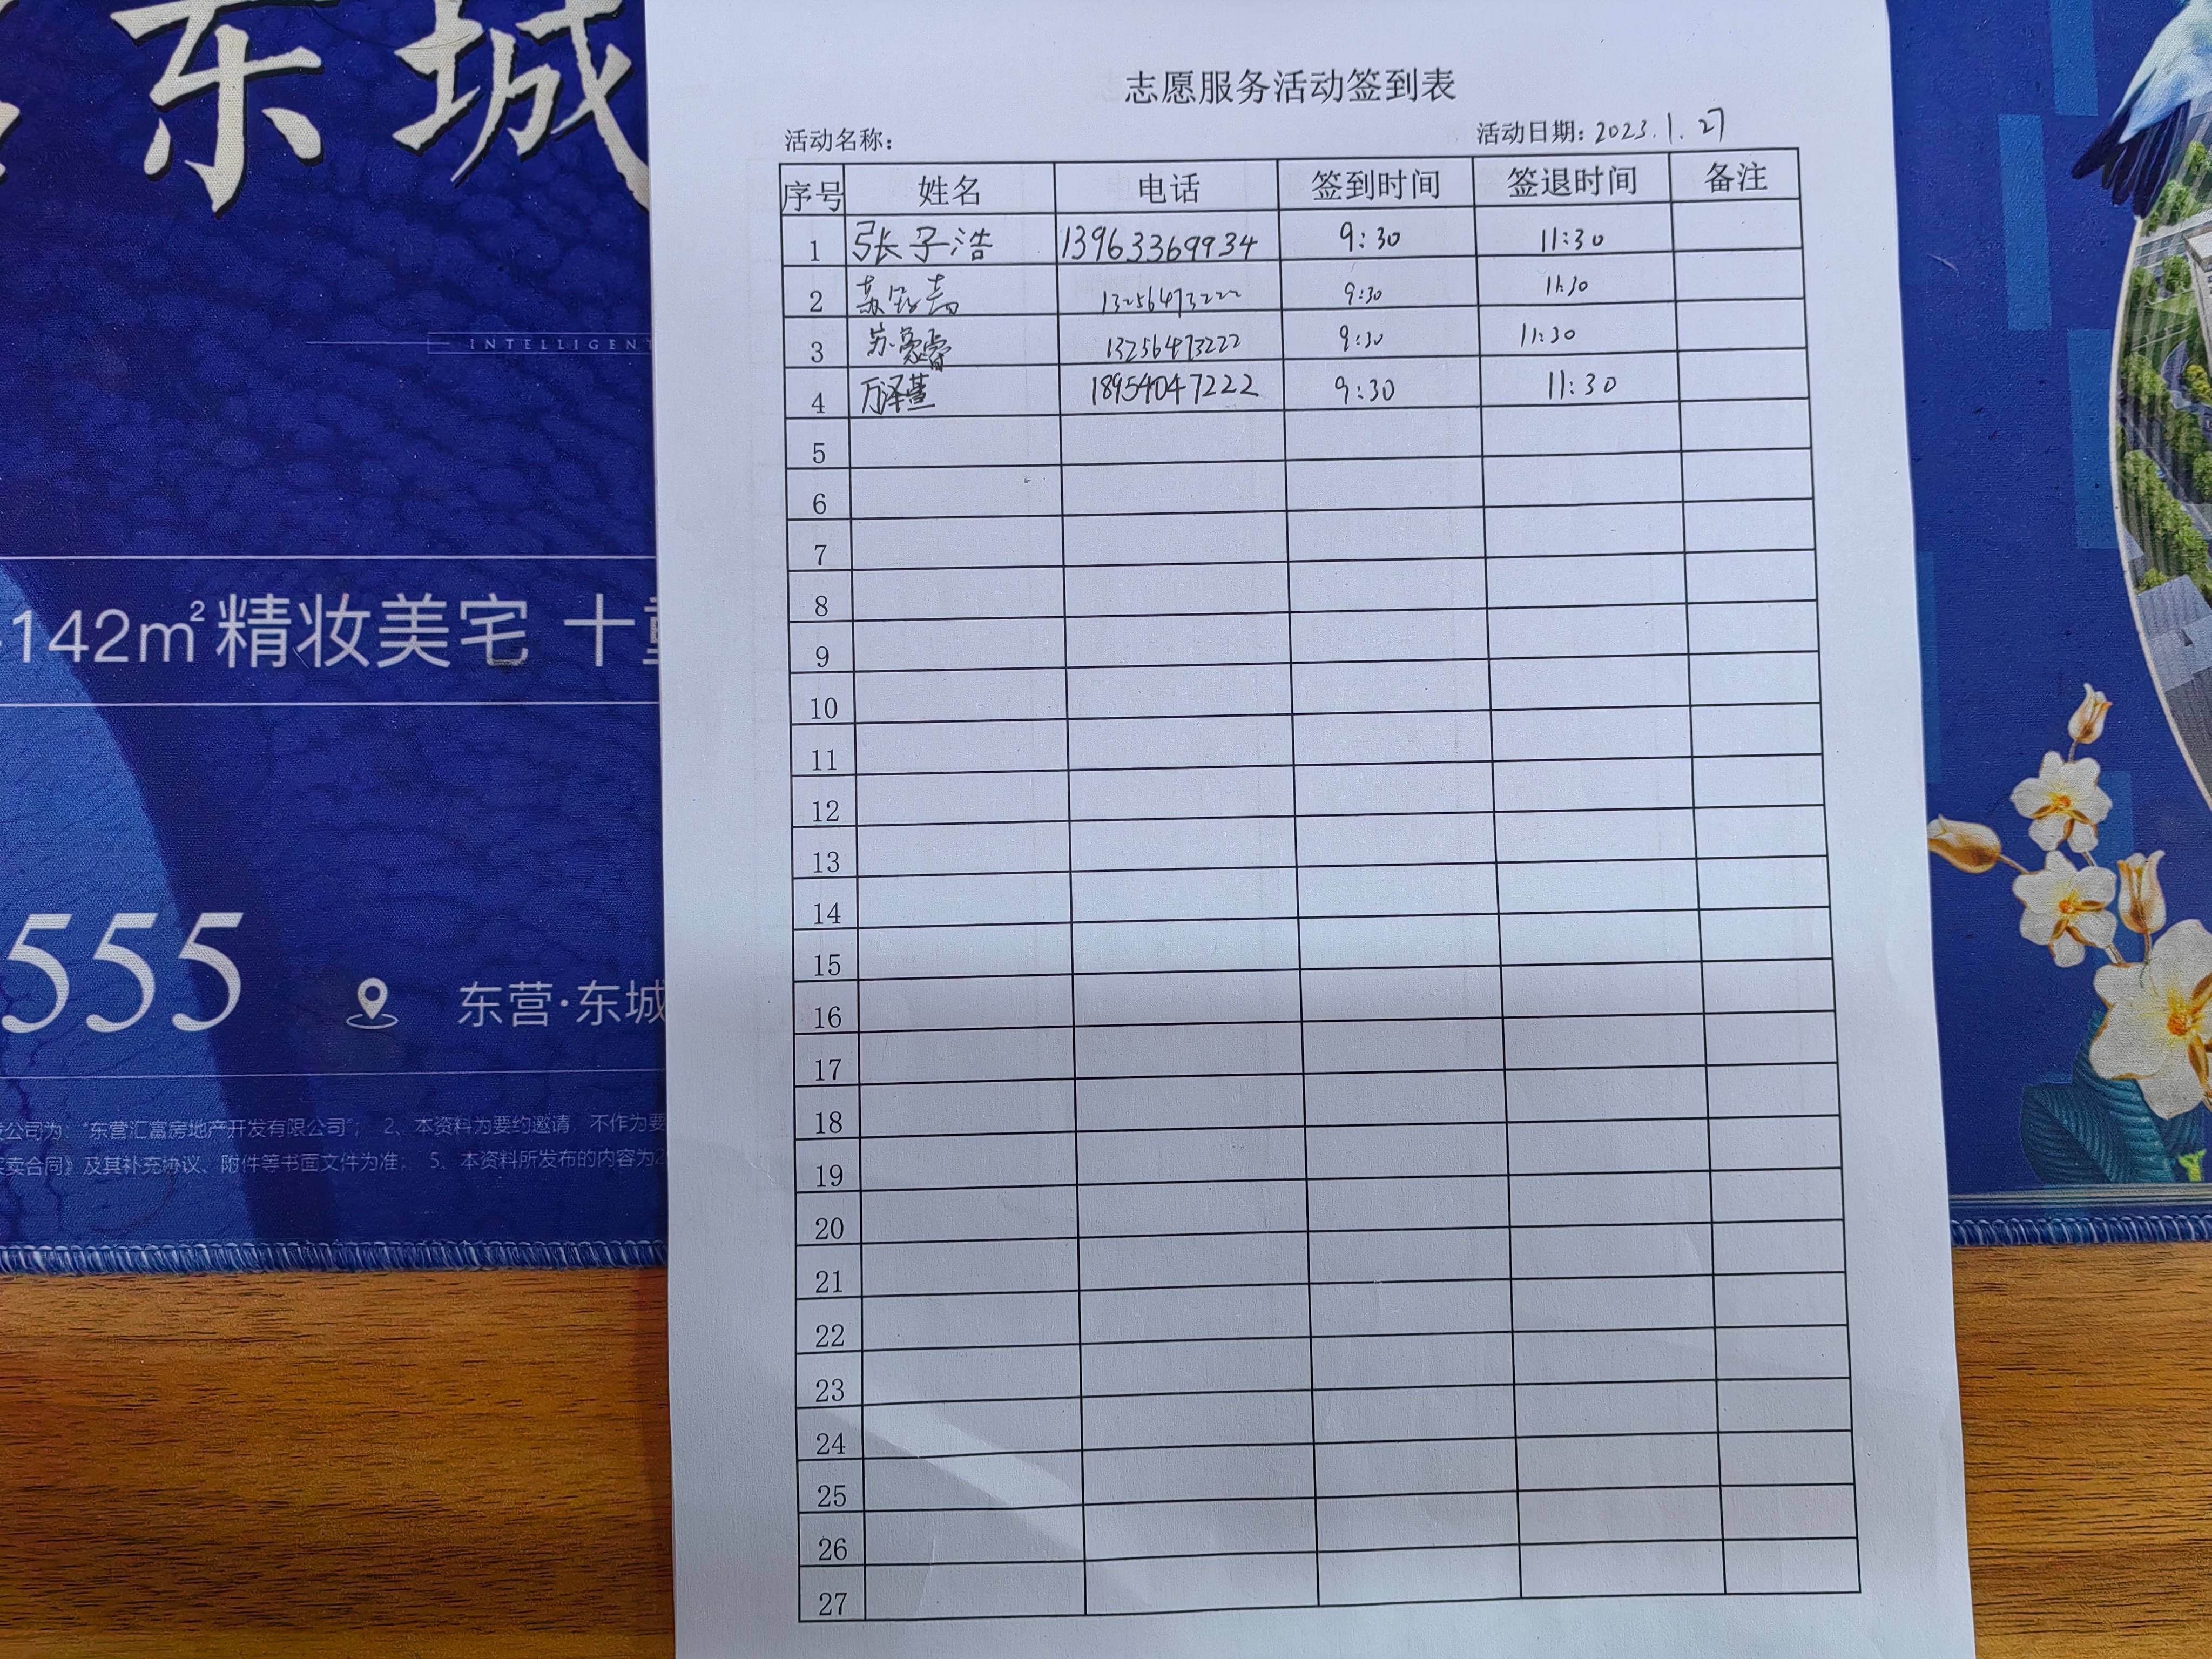 东城
INTELLIGENT
142㎡精妆美宅 十重
555
东营·东城
公司为：“东营汇富房地产开发有限公司”； 2、本资料为要约邀请，不作为要
买卖合同》及其补充协议、附件等书面文件为准； 5、本资料所发布的内容为2
志愿服务活动签到表
活动名称： 活动日期：2023.1.27
序号 姓名 电话 签到时间 签退时间 备注
1 张子浩 13963369934 9:30 11:30
2 苏 13256473222 9:30 11:30
3 苏豪睿 13256473222 9:30 11:30
4 万泽萱 18954047222 9:30 11:30
5
6
7
8
9
10
11
12
13
14
15
16
17
18
19
20
21
22
23
24
25
26
27